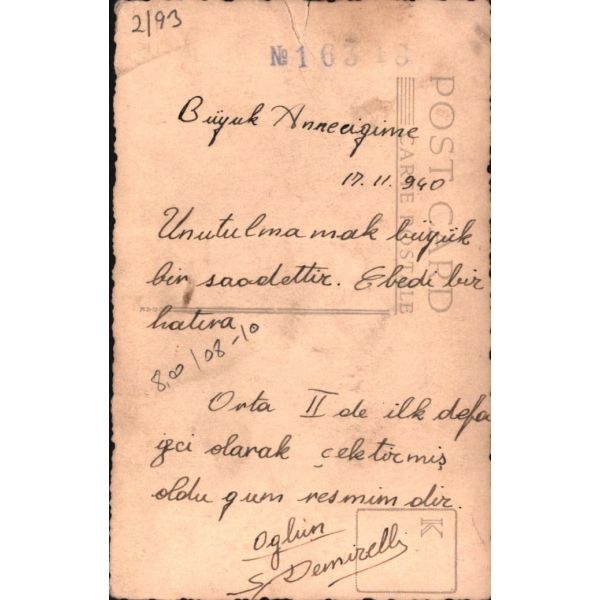 2/93
№ 16313
Büyük Anneciğime
17.11.940
Unutulmamak büyük
bir saadettir. Ebedi bir
hatıra
8,00/08-10
Orta II de ilk defa
olarak çektirmiş
olduğum resmimdir.
Oğlun
S. Demirelli
POST CARD
CARTE POSTALE
K